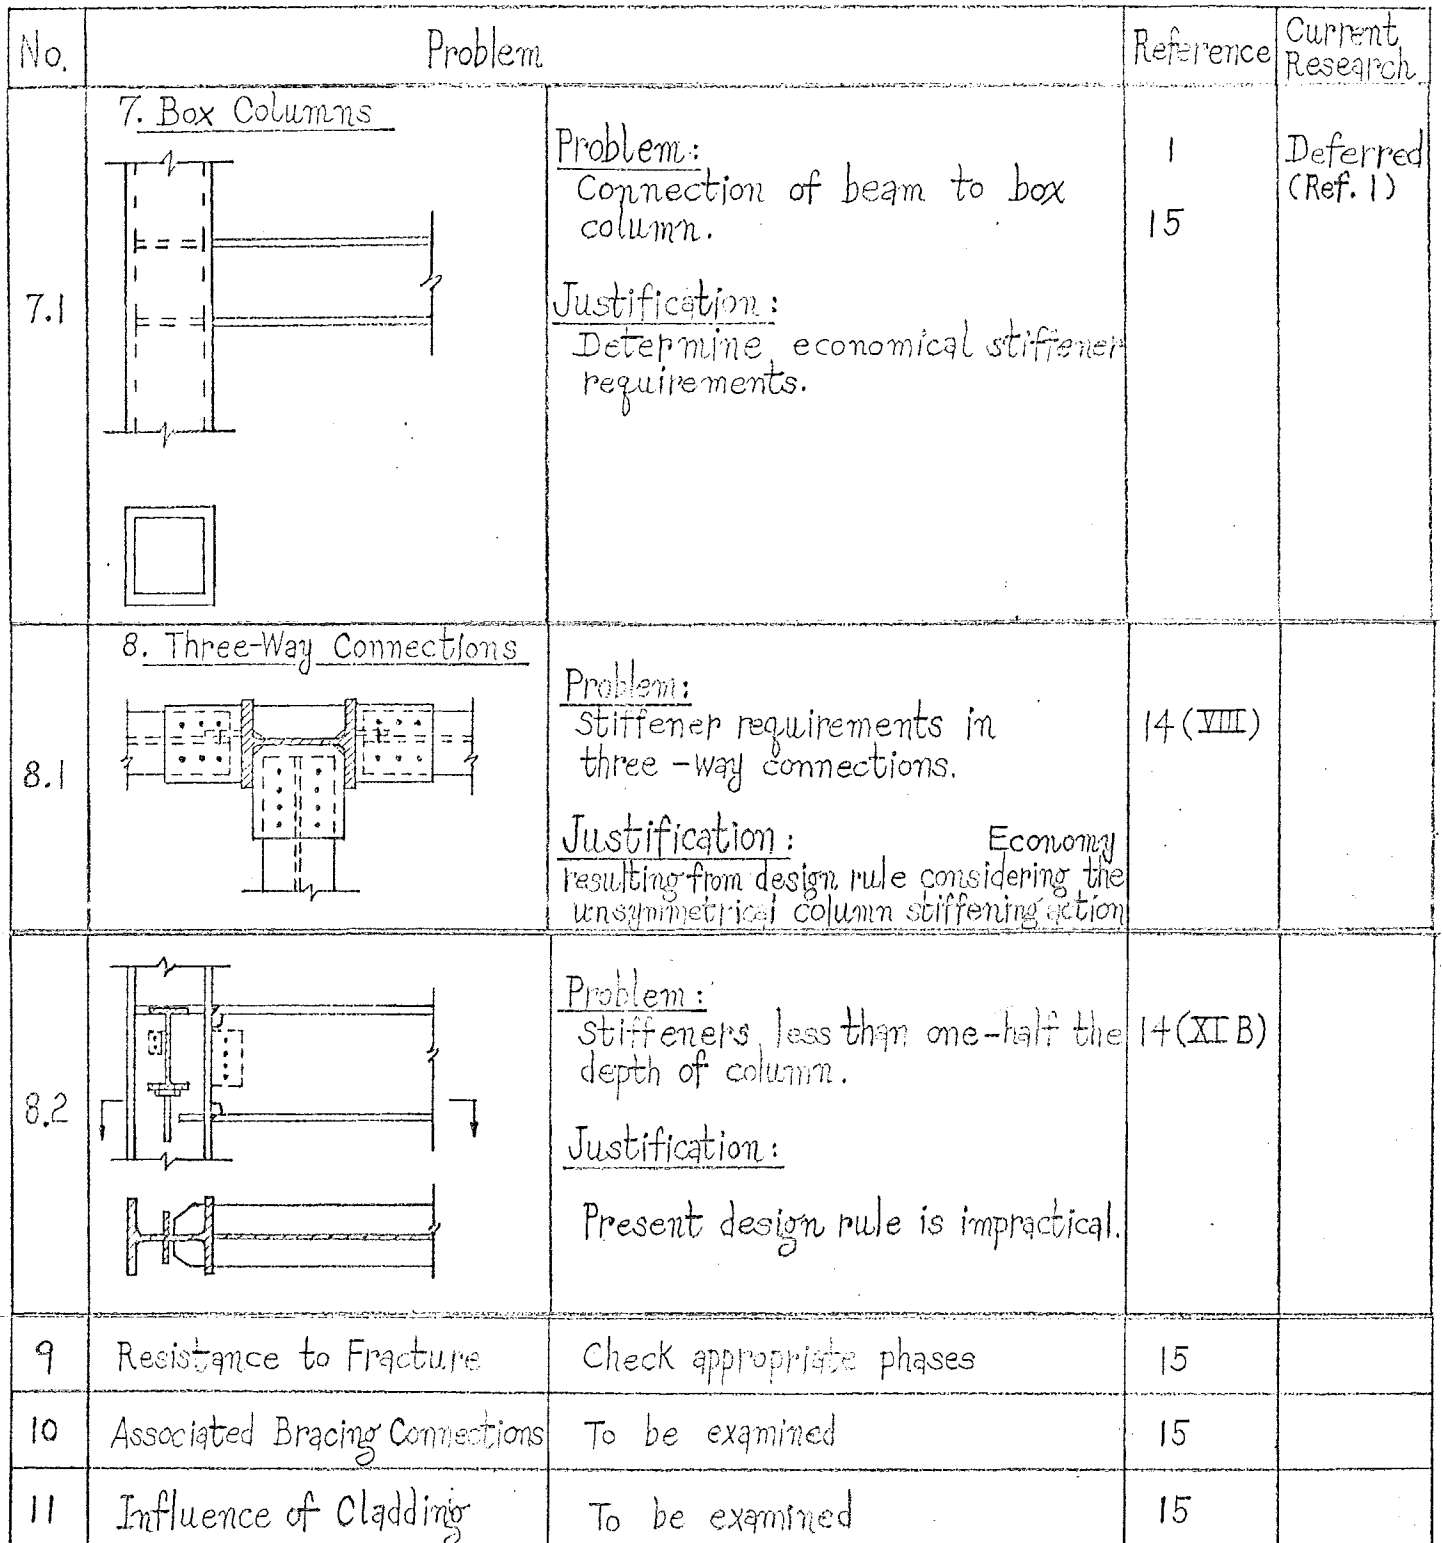 No.
Problem
Reference
Current
Research
7.1
7. Box Columns
Problem:
Connection of beam to box
column.
Justification:
Determine economical stiffener
requirements.
1
15
Deferred
(Ref. 1)
8.1
8. Three-Way Connections
Problem:
Stiffener requirements in
three-way connections.
Justification: Economy
resulting from design rule considering the
unsymmetrical column stiffening action
14 (VIII)
8.2
Problem:
Stiffeners less than one-half the
depth of column.
Justification:
Present design rule is impractical.
14 (XI B)
9
Resistance to Fracture
Check appropriate phases
15
10
Associated Bracing Connections
To be examined
15
11
Influence of Cladding
To be examined
15